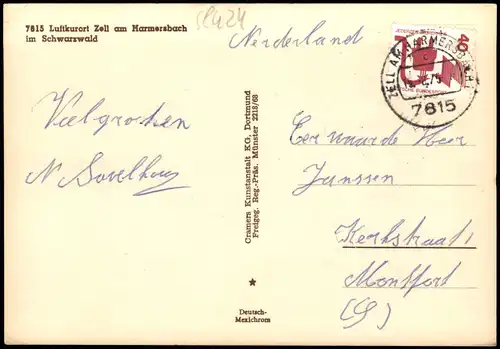 7615 Luftkurort Zell am Harmersbach
im Schwarzwald
Nederland
40
ZELL AM HARMERSBACH
7615
Veel groeten
Cramers Kunstanstalt KG, Dortmund
Freigeg. Reg.-Präs. Münster 2218/68
Eerwaarde Heer
Janssen
Kerkstraat 1
Montfort
(L)
Deutsch-
Mexichrom